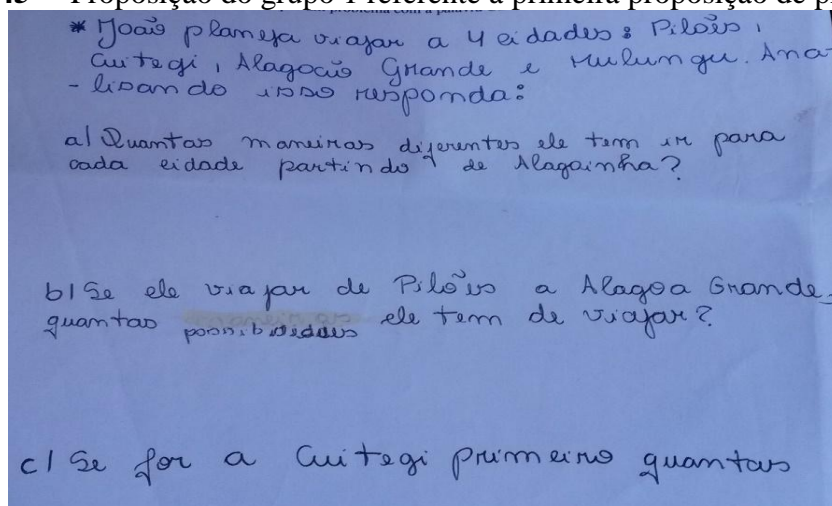 Proposição do grupo 1 referente à primeira proposição de
problema com a palavra
* João planeja viajar a 4 cidades: Pilões,
Cuitegi, Alagoão Grande e Mulungu. Ana-
- lisando isso responda:
a) Quantas maneiras diferentes ele tem ir para
cada cidade partindo de Alagainha?
b) Se ele viajar de Pilões a Alagoa Grande
quantas possibilidades ele tem de viajar?
c) Se for a Cuitegi primeiro quantas